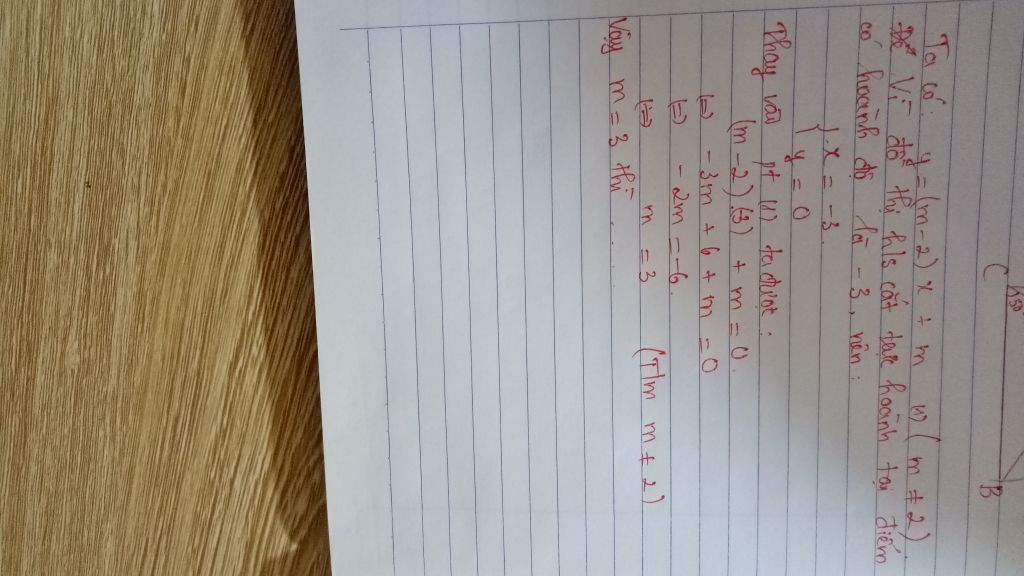 C 30° B
Ta có: y = (m-2)x + m (1) (m ≠ 2)
Vì đồ thị h/s cắt trục hoành tại điểm
có hoành độ là -3, nên:
{ x = -3.
y = 0
Thay vào pt (1) ta được:
(m-2)(-3) + m = 0.
(=) -3m + 6 + m = 0
(=) -2m = -6.
(=) m = 3 (T/m m ≠ 2)
Vậy m = 3 thì . . . .